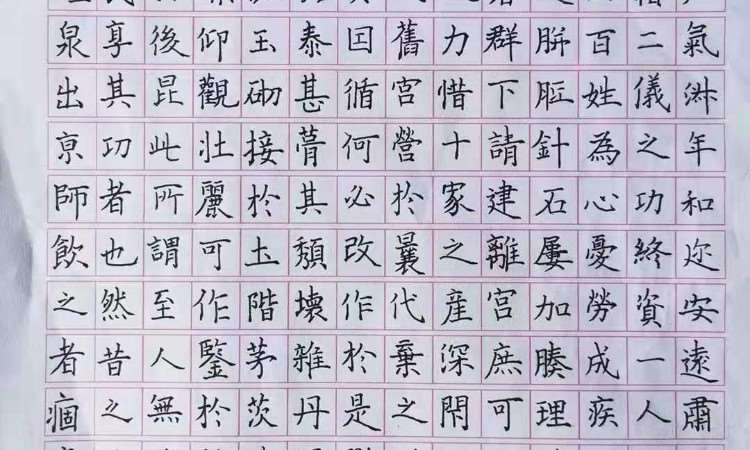 氣淑年和迩安遠肅
二儀之功終資一人
百姓為心憂勞成疾
胼胝針石屢加腠理
群下請建離宮庶可
力惜十家之產深閇
舊宮營於曩代棄之
因循何必改作於是
泰甚葺其頹壞雜丹
玉砌接於土階茅茨
仰觀壯麗可作鑒於
後昆此所謂至人無
享其功者也然昔之
泉出京師飲之者痼